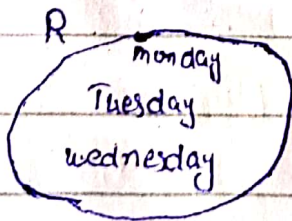 R
monday
Tuesday
wednesday